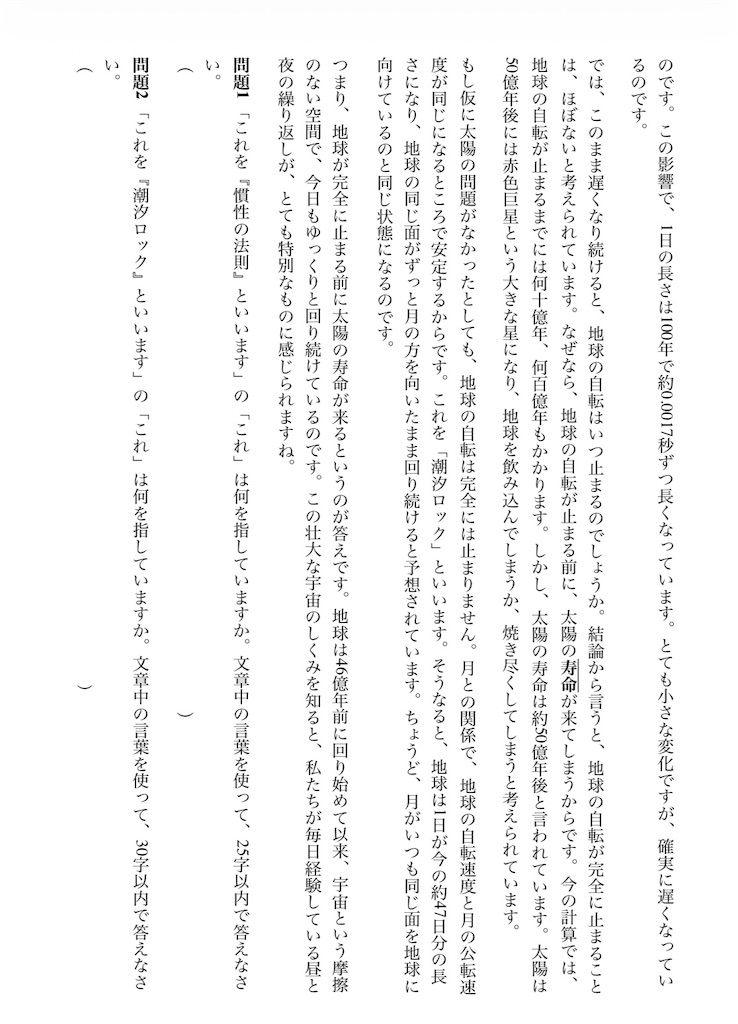 のです。この影響で、1日の長さは100年で約0.0017秒ずつ長くなっています。とても小さな変化ですが、確実に遅くなってい
るのです。
では、このまま遅くなり続けると、地球の自転はいつ止まるのでしょうか。結論から言うと、地球の自転が完全に止まること
は、ほぼないと考えられています。なぜなら、地球の自転が止まる前に、太陽の寿命が来てしまうからです。今の計算では、
地球の自転が止まるまでには何十億年、何百億年もかかります。しかし、太陽の寿命は約50億年後と言われています。太陽は
50億年後には赤色巨星という大きな星になり、地球を飲み込んでしまうか、焼き尽くしてしまうと考えられています。
もし仮に太陽の問題がなかったとしても、地球の自転は完全には止まりません。月との関係で、地球の自転速度と月の公転速
度が同じになるところで安定するからです。これを「潮汐ロック」といいます。そうなると、地球は1日が今の約47日分の長
さになり、地球の同じ面がずっと月の方を向いたまま回り続けると予想されています。ちょうど、月がいつも同じ面を地球に
向けているのと同じ状態になるのです。
つまり、地球が完全に止まる前に太陽の寿命が来るというのが答えです。地球は46億年前に回り始めて以来、宇宙という摩擦
のない空間で、今日もゆっくりと回り続けているのです。この壮大な宇宙のしくみを知ると、私たちが毎日経験している昼と
夜の繰り返しが、とても特別なものに感じられますね。
問題1 「これを『慣性の法則』といいます」の「これ」は何を指していますか。文章中の言葉を使って、25字以内で答えなさ
い。
（　　　　　　　　　　　　　　　　　　　　　　　　　）
問題2 「これを『潮汐ロック』といいます」の「これ」は何を指していますか。文章中の言葉を使って、30字以内で答えなさ
い。
（　　　　　　　　　　　　　　　　　　　　　　　　　）